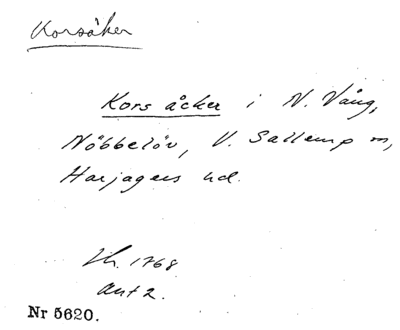 Korsåker
Kors åcker i N. Vång,
Nöbbelöv, V. Sallerup sn,
Harjagers hd.
Lh. 1768
Ant 2.
Nr 5620.